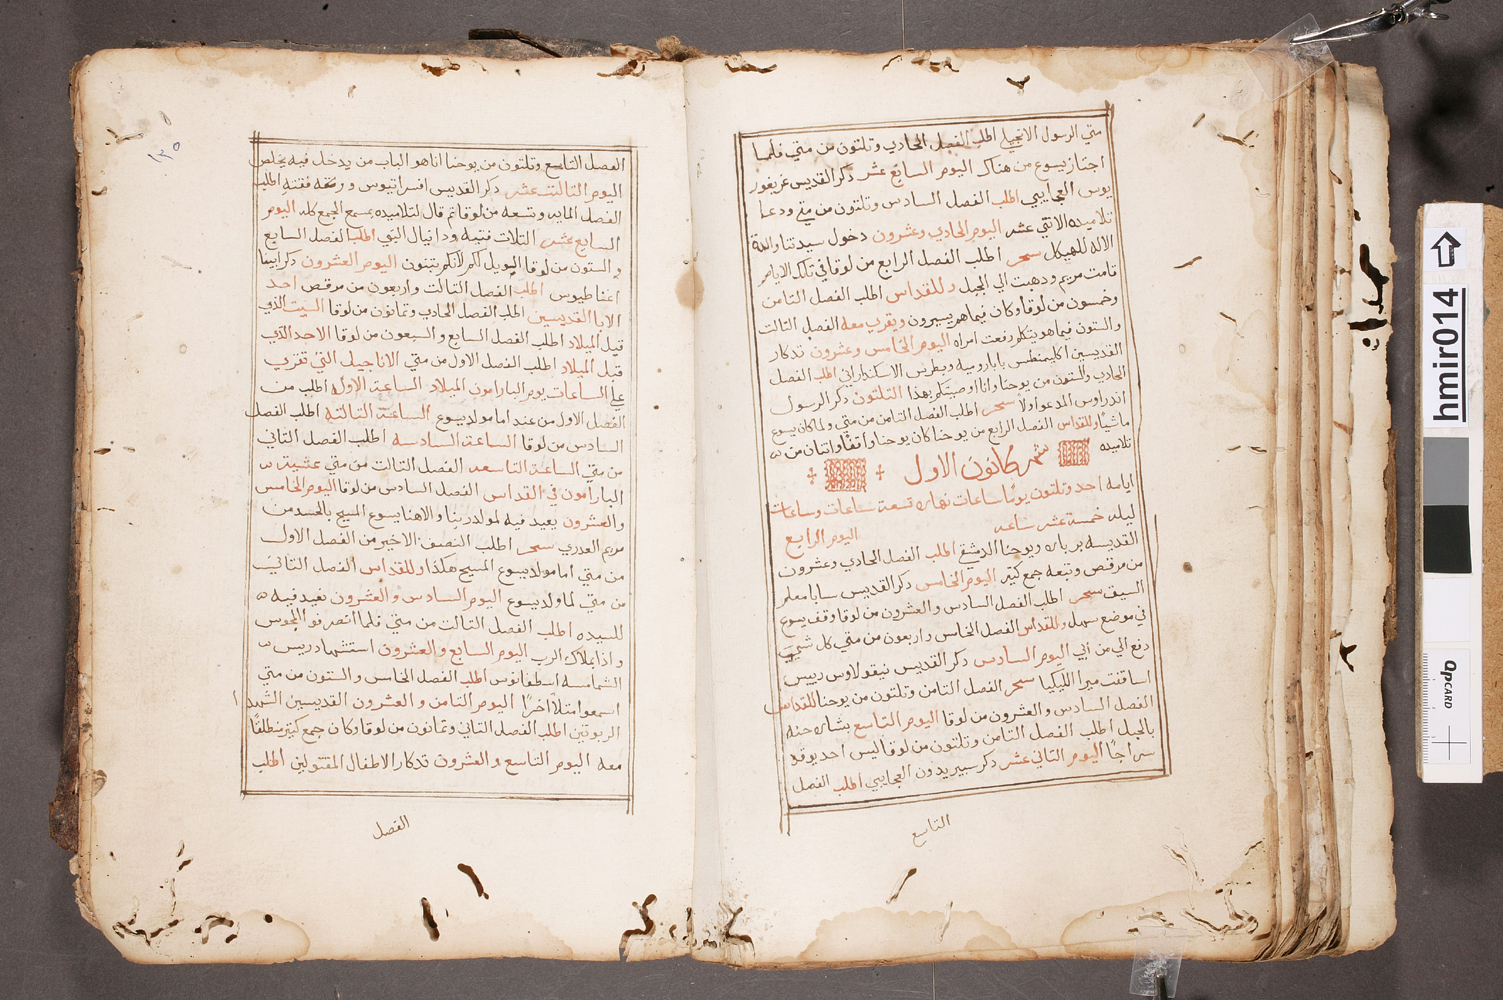 متي الرسول الانجيلي اطلب الفصل الحادي وتلتون من متي فلما
اجتاز يسوع من هناك اليوم السابع عشر ذكر القديس غريغور
يوس العجايبي اطلب الفصل السادس وتلتون من متي ودعا
تلاميذه الاتني عشر اليوم الحادي وعشرون دخول سيدتنا والدة
الاله للهيكل سحر اطلب الفصل الرابع من لوقا في تلك الايام
قامت مريم ودهبت الي الجبل وللقداس اطلب الفصل التامن
وخمسون من لوقا وكان فيما هم يسيرون ويقرب معه الفصل التالت
والستون فيما هو يتكلم رفعت امراه اليوم الخامس وعشرون تدكار
القديسين اكليمنطس بابا روميه وبطرس الاسكندراني اطلب الفصل
الحادي والستون من يوحنا وانا اوصيتكم بهذا التلتون ذكر الرسول
اندراوس المدعو اولا سحر اطلب الفصل التامن من متي ولما كان يسوع
ماشيا وللقداس الفصل الرابع من يوحنا كان يوحنا واقفا واتنان من
تلاميده شهر كانون الاول
ايامه احد وتلتون يوما ساعات نهاره تسعة ساعات وساعات
ليله خمسة عشر ساعه اليوم الرابع
القديسه برباره ويوحنا الدمشقي اطلب الفصل الحادي وعشرون
من مرقص وتبعه جمع كتير اليوم الخامس ذكر القديس سابا معلم
السيق سحر اطلب الفصل السادس والعشرون من لوقا وقف يسوع
في موضع سهل وللقداس الفصل الخامس واربعون من متي كل شي
دفع الي من ابي اليوم السادس ذكر القديس نيقولاوس رييس
اساقفت ميرا الليكيا سحر الفصل التامن وتلتون من يوحنا للقداس
الفصل السادس والعشرون من لوقا اليوم التاسع بشاره حنه
بالحبل اطلب الفصل التامن وتلتون من لوقا ليس احد يوقد
سراجا اليوم التاني عشر ذكر سبيريدون العجايبي اطلب الفصل
التاسع
١٣٥
الفصل التاسع وتلتون من يوحنا انا هو الباب من يدخل فيه يخلص
اليوم التالت عشر ذكر القديس افستراتيوس ورفقته اطلب
الفصل المايه وتسعه من لوقا تم قال لتلاميذه بمسمع الجمع كله اليوم
السابع عشر التلات فتيه ودانيال النبي اطلب الفصل السابع
والستون من لوقا الويل لكم لانكم تبنون اليوم العشرون ذكر ابينا
اغناطيوس اطلب الفصل التالت واربعون من مرقص احد
الابا القديسين اطلب الفصل الحادي وتمانون من لوقا السبت الذي
قبل الميلاد اطلب الفصل السابع والسبعون من لوقا الاحد الذي
قبل الميلاد اطلب الفصل الاول من متي الاناجيل التي تقري
علي الساعات يوم البارامون الميلاد الساعة الاوله اطلب من
الفصل الاول من عند اما مولد يسوع الساعة التالته اطلب الفصل
السادس من لوقا الساعة السادسه اطلب الفصل التاني
من متي الساعة التاسعه الفصل التالت من متي عشية
البارامون في القداس الفصل السادس من لوقا اليوم الخامس
والعشرون يعيد فيه لمولد ربنا والاهنا يسوع المسيح بالجسد من
مريم العدري سحر اطلب النصف الاخير من الفصل الاول
من متي اما مولد يسوع المسيح هكذا وللقداس الفصل التاني
من متي لما ولد يسوع اليوم السادس والعشرون نعيد فيه
للسيده اطلب الفصل التالت من متي فلما انصرفوا المجوس
واذا بملاك الرب اليوم السابع والعشرون استشهاد رييس
الشمامسه اسطفانوس اطلب الفصل الخامس والستون من متي
اسمعوا متلا اخرا اليوم التامن والعشرون القديسين الشهدا
الربوتين اطلب الفصل التاني وتمانون من لوقا وكان جمع كتير منطلقا
معه اليوم التاسع والعشرون تدكار الاطفال المقتولين اطلب
الفصل
hmir014
QPCARD